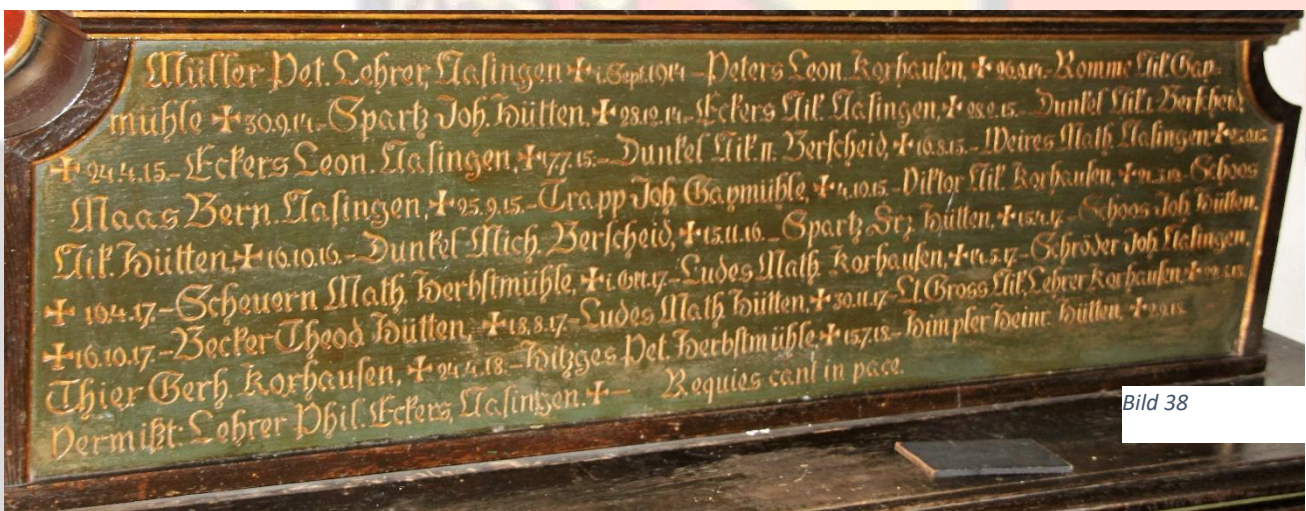 Müller Pet. Lehrer, Nasingen + 1. Sept. 1914 – Peters Leon. Korhausen, + – Romme Nik. Gay-
mühle + 30.9.14. – Spartz Joh. Hütten, + 28.12.14. – Eckers Nik. Nasingen, + 28.2.15. – Dunkel Nik. I. Berscheid,
+ 24.4.15. – Eckers Leon. Nasingen, + 17.7.15. – Dunkel Nik. II. Berscheid, + 10.8.15. – Weires Math. Nasingen +
Maas Bern. Nasingen, + 25.9.15. – Trapp Joh. Gaymühle, + 4.10.15. – Viktor Nik. Korhausen, + – Schoos
Nik. Hütten, + 10.10.16. – Dunkel Mich. Berscheid, + 15.11.16. – Spartz Frz. Hütten, + 15.4.17. – Schoos Joh. Hütten,
+ 10.4.17. – Scheuern Math. Herbstmühle, + 1. Okt. 17. – Ludes Math. Korhausen, + 14.5.17. – Schröder Joh. Nasingen,
+ 16.10.17. – Becker Theod. Hütten, + 18.8.17. – Ludes Math. Hütten, + 30.11.17. – Lt. Gross Nik. Lehrer Korhausen, +
Thier Gerh. Korhausen, + 24.4.18. – Hitzges Pet. Herbstmühle + 15.7.18. – Himpler Heinr. Hütten +
Vermißt: Lehrer Phil. Eckers, Nasingen. + – Requiescant in pace.
Bild 38